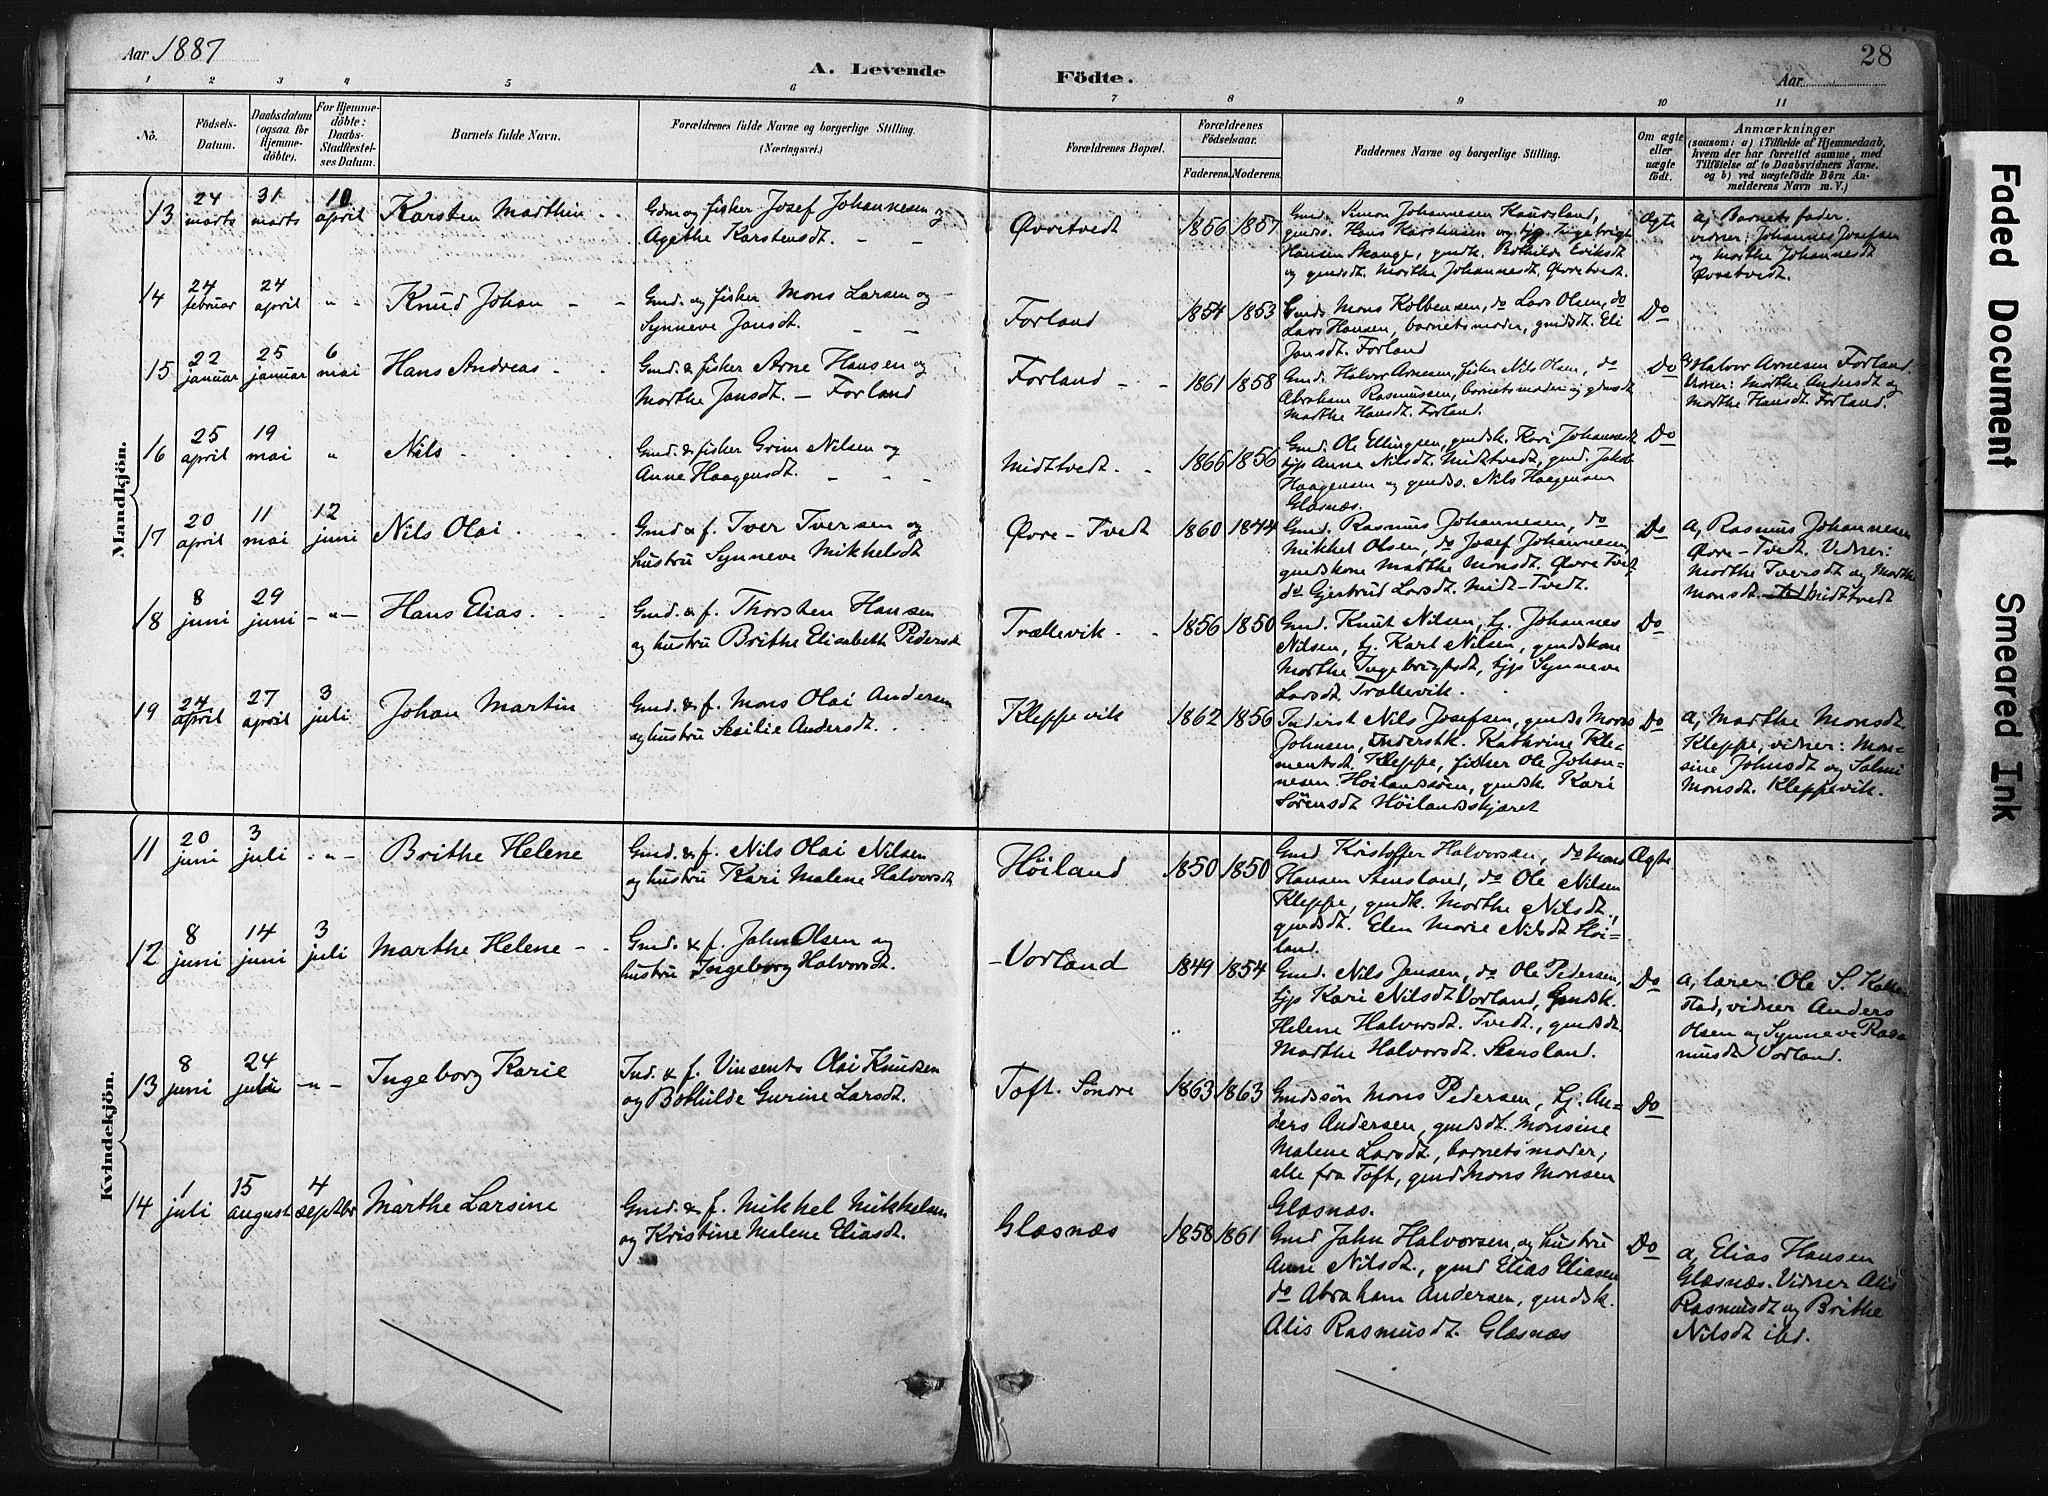 Aar 1887
A. Levende Födte.
28
Aar
1 2 3 4 5 6 7 8 9 10 11
No.
Födsels-Datum.
Daabsdatum (ogsaa for Hjemme-döbte).
For Hjemme-döbte: Daabs-Stadfæstel-ses Datum.
Barnets fulde Navn.
Forældrenes fulde Navne og borgerlige Stilling. (Næringsvei.)
Forældrenes Bopæl.
Forældrenes Födselsaar.
Faderens. Moderens.
Faddernes Navne og borgerlige Stilling.
Om ægte eller uægte födt.
Anmærkninger
(saasom: a) i Tilfælde af Hjemmedaab, hvem der har forrettet samme, med Tilföielse af to Daabsvidners Navne. og b) ved uægtefödte Börn An-melderens Navn m. V.)
Mandkjön.
13 24 marts 31 marts 10 april Karsten Marthin
Gdm og fisker Josef Johannesen og
Agathe Karstensdt.
Øvretvedt 1856 1857
Gmd. Simon Johannesen
gmds. Hans Karstensen og tjp. Ingebrigt
Hansen Skauge, gmdk. Bothilde Eriksdt
og gmdsdt. Marthe Johannesdt. Øvretvedt.
Ægte
a, Barnets fader.
vidner: Johannes Josefsen
og Marthe Johannesdt
Øvretvedt.
14 24 februar 24 april " " Knud Johan
Gmd. og fisker Mons Larsen og
Synneve Jansdt.
Forland 1854 1853
Gmds Mons Kolbensen, do Lars Olsen, do
Lars Hansen, barnets moder, gmdsdt. Eli
Jansdt. Forland
Do
15 22 januar 25 januar 6 mai Hans Andreas
Gmd. & fisker Arne Hansen og
Marthe Jansdt. – Forland
Forland 1861 1858
Gmd. Halvor Arnesen, fisker Nils Olsen, do
Abraham Rasmussen, barnets moder og gmdsdt
Marthe Hansdt. Forland.
Do
a, Halvor Arnesen Forland.
Vidner: Marthe Andersdt og
Marthe Hansdt. Forland.
16 25 april 19 mai " Nils
Gmd. & fisker Grim Nilsen og
Anne Haagensdt.
Midttvedt. 1866 1856
Gmd. Ole Ellingsen, gmdsk. Kari Johannesdt
tjp Anne Nilsdt. Midttvedt, gmd. Jakob
Haagensen og gmdss. Nils Haagensen
Glæsnæs.
Do
17 20 april 11 mai 12 juni Nils Olai
Gmd & f. Iver Iversen og
hustru Synneve Mikkelsdt
Øvre-Tvedt 1860 1844
Gmd. Rasmus Johannesen, do
Mikkel Olsen, do Josef Johannesen,
gmdskone Marthe Monsdt. Øvre Tvedt,
do Gjertrud Larsdt. Midt-Tvedt.
Do
a, Rasmus Johannesen
Øvre-Tvedt. Vidner:
Marthe Iversdt og Marthe
Monsdt. Midttvedt
18 8 juni 29 juni -"- Hans Elias
Gmd. & f. Thorsten Hansen
og hustru Brithe Elisabeth Pedersdt
Trællevik 1856 1850
Gmd. Knut Nilsen, tj. Johannes
Nilsen, tj. Karl Nilsen, gmdskone
Marthe Ingebrigtsdt, tjp Synneve
Larsdt Trællevik.
Do
19 24 april 27 april 3 juli Johan Martin
Gmd. & f. Mons Olai Andersen
og hustru Sesilie Andersdt.
Kleppevik 1862 1856
Inderst Nils Josefsen, gmds. Mons
Johnsen, Inderstk. Kathrine Kle-
mentsdt. Kleppe, fisker Ole Johan-
nesen Höilandssören, gmdsk. Kari
Sörensdt Höilandsskjæret
Do
a, Marthe Monsdt.
Kleppe, vidner: Mon-
sine Johnsdt og Salmi
Monsdt. Kleppevik.
Kvindekjön.
11 20 juni 3 juli -"- Brithe Helene
Gmd. & f. Nils Olai Nilsen
og hustru Kari Malene Halvorsdt,
Höiland 1850 1850
Gmd Kristoffer Halvorsen, do Mons
Hansen Stensland, do Ole Nilsen
Kleppe, gmdk. Marthe Nilsdt.,
gmdsdt. Elen Marie Nilsdt Höi-
land.
Ægte
12 8 juni 14 juni 3 juli Marthe Helene
Gmd. & f. John Olsen og
hustru Ingeborg Halvorsdt.
Vorland 1849 1854
Gmd. Nils Jansen, do Ole Pedersen,
tjp Kari Nilsdt Vorland, Gmdsk.
Helene Halvorsdt. Tvedt., gmdsdt.
Marthe Halvorsdt. Stensland.
Do
a, lærer Ole S.
vidner Anders
Olsen og Synneve Ras-
musdt Vorland.
13 8 juni 24 juli -"- Ingeborg Karie
Ind. & f. Vinsents Olai Knudsen
og Bothilde Gurine Larsdt.
Toft. Söndre 1863 1863
Gmdssön Mons Pedersen, tj. An-
ders Andersen, gmdsdt. Monsine
Malene Larsdt., barnets moder,
alle fra Toft, gmd Mons Monsen
Glæsnæs.
Do
14 1 juli 15 august 4 septbr Marthe Larsine
Gmd. & f. Mikkel Mikkelsen
og Kristine Malene Eliasdt.
Glæsnæs 1858 1861
Gmd John Halvorsen, og hustru
Anne Nilsdt., gmd Elias Eliasen
do Abraham Andersen, gmdsk.
Alis Rasmusdt. Glæsnæs
Do
a, Elias Hansen
Glæsnæs. Vidner Alis
Rasmusdt og Brithe
Nilsdt ibd.
Faded Document
Smeared Ink